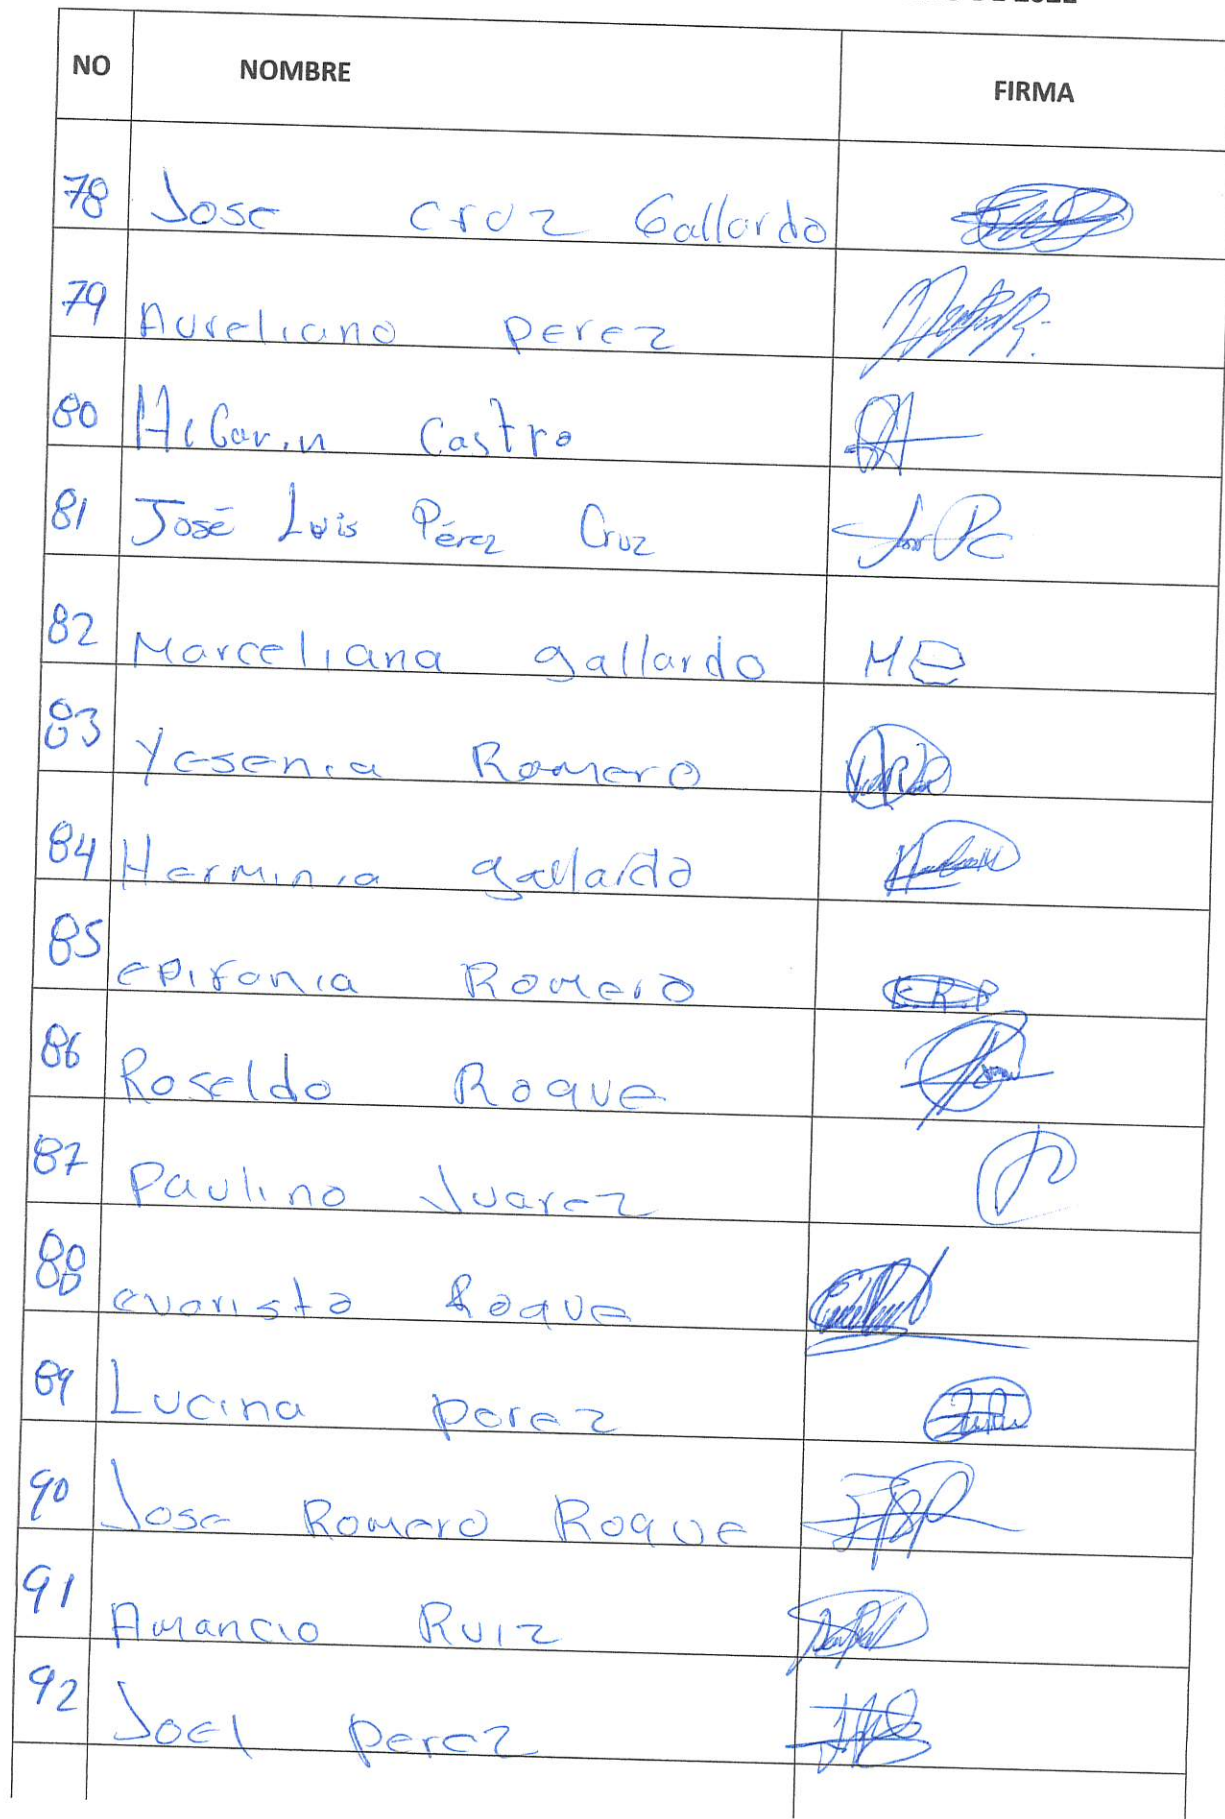 NO NOMBRE FIRMA
78 Jose Cruz Gallardo
79 Aureliano perez
80 Castro
81 José Luis Pérez Cruz
82 Marceliana gallardo M
83 Yesenia Romero
84 Herminia gallardo
85 epifania Romero E.R.P
86 Roseldo Roque
87 Paulino Juarez
88 evaristo Roque
89 Lucina perez
90 Jose Romero Roque
91 Amancio Ruiz
92 Joel perez